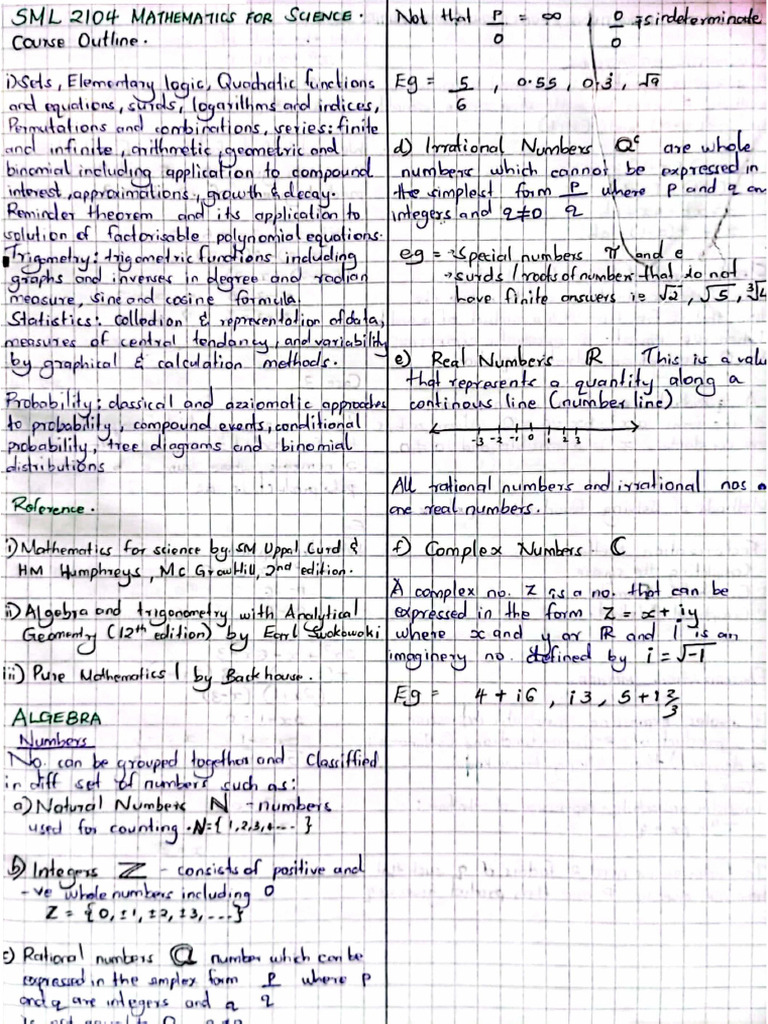 SML 2104 MATHEMATICS FOR SCIENCE.
Course Outline.
i) Sets, Elementary logic, Quadratic functions
and equations, surds, logarithms and indices,
Permutations and combinations, series: finite
and infinite, arithmetic, geometric and
binomial including application to compound
interest, approximations, growth & decay.
Reminder theorem and its application to
solution of factorisable polynomial equations.
Trigometry: trigometric functions including
graphs and inverses in degree and radian
measure, sine and cosine formula
Statistics: collection & representation of data,
measures of central tendancy, and variability
by graphical & calculation methods.
Probability: classical and azziomatic approaches
to probability, compound events, conditional
probability, tree diagrams and binomial
distributions
Reference.
i) Mathematics for science by SM Uppal Curd &
HM Humphreys, Mc GrawHill, 2nd edition.
ii) Algebra and trigonometry with Analytical
Geomentry (12th edition) by Earl Swokowski
iii) Pure Mathematics 1 by Backhouse.
ALGEBRA
Numbers
No. can be grouped together and Classiffied
in diff set of numbers such as:
a) Natural Numbers N - numbers
used for counting. N = {1,2,3,4....}
b) Integers Z - consists of positive and
-ve whole numbers including 0
Z = {0, ±1, ±2, ±3, ....}
c) Rational numbers Q number which can be
expressed in the simplex form P where P
and q are integers and q q
is not equal to 0
Not that P = ∞ , 0 is indeterminate
0 0
Eg = 5 , 0.55, 0.3̇, √9
6
d) Irrational Numbers Qᶜ are whole
numbers which cannot be expressed in
the simplest form P where P and q are
integers and q≠0 q
eg = → Special numbers π and e
→ surds / roots of number that do not
have finite answers ie √2, √5, ∛4
e) Real Numbers ℝ This is a valu
that represents a quantity along a
continous line (number line)
-3 -2 -1 0 1 2 3
All rational numbers and irrational nos
are real numbers.
f) Complex Numbers. ℂ
A complex no. Z is a no. that can be
expressed in the form Z = x + iy
where x and y ar ℝ and i is an
imaginery no. defined by i = √-1
Eg = 4 + i6, i3, 5 + i 2/3